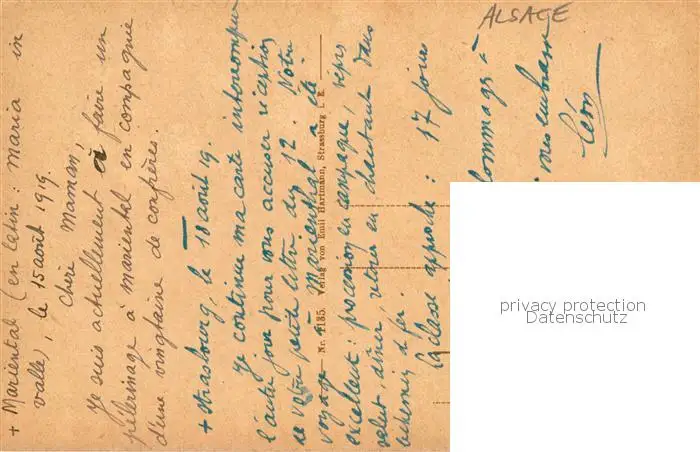 + Mariental (en latin : maria in
valle), le 15 août 1919.
Chère Maman,
Je suis actuellement à faire un
pèlerinage à Mariental en compagnie
d'une vingtaine de confrères.
+ Strasbourg, le 18 août 19.
Je continue ma carte interrompue
l'autre jour pour vous accuser réception
de votre petite lettre du 12. Notre
voyage à marienthal a été
excellent : procession en campagne, vêpres
salut, dîner, retour en chantant dans
le chemin de fer.
La classe approche : 17 jours
hommages à
vous embrasse
Léon
ALSACE
Nr. 7135. Verlag von Emil Hartmann, Strassburg i. E.
privacy protection
Datenschutz